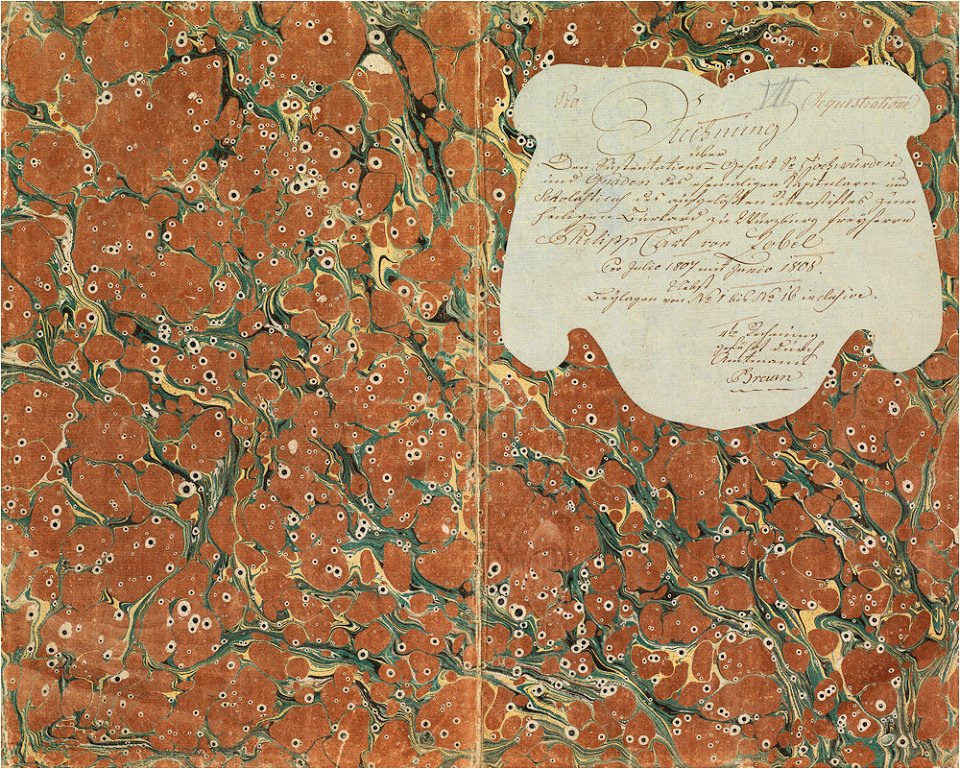 Pro VIII Sequestratione
Rechnung
über
Den Sustentations-Gehalt Sr. Hochwürden
und Gnaden des ehemaligen Kapitularn und
Scholasticus des aufgelößten Ritterstiftes zum
heiligen Burkard zu Würzburg freyherrn
Philipp Carl von Zobel
Pro Julio 1807 mit Junio 1808.
Nebst
Beylagen von No 1 bis No 16 inclusive.
Rechnung
geführt durch
Braun